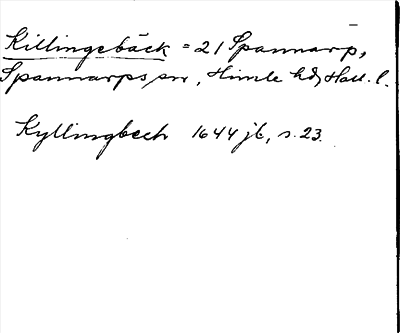 Killingebäck = 21 Spannarp,
Spannarps sn, Himle hd, Hall. l.
Kyllingbech 1644 jb, s. 23.